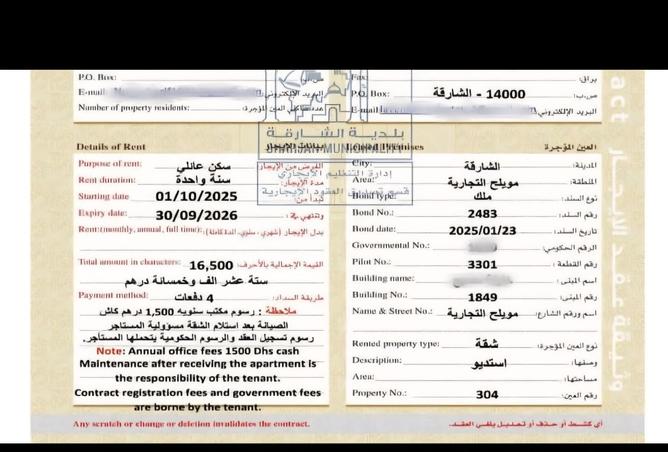 P.O. Box:
ص.ب:
Fax:
براق:
E-mail
البريد الإلكتروني:
P.O. Box:
14000 - الشارقة
ص.ب:
Number of property residents:
E-mail
البريد الإلكتروني:
بلدية الشارقة
SHARJAH MUNICIPALITY
إدارة التنظيم الإيجاري
قسم تصديق العقود الإيجارية
Details of Rent
بيانات الايجار
Leased Premises
العين المؤجرة
Purpose of rent:
سكن عائلي
الغرض من الإيجار:
Rent duration:
سنة واحدة
مدة الإيجار:
Starting date
01/10/2025
تبدأ من:
Expiry date:
30/09/2026
وتنتهي في:
Rent:(monthly, annual, full time):
بدل الإيجار (شهري ، سنوي، المدة كاملة):
Total amount in characters:
16,500
القيمة الإجمالية بالأحرف:
ستة عشر الف وخمسائة درهم
Payment method:
4 دفعات
طريقة السداد:
ملاحظة : رسوم مكتب سنويه 1,500 درهم كاش
الصيانة بعد استلام الشقة مسؤولية المستاجر
رسوم تسجيل العقد والرسوم الحكومية يتحملها المستأجر.
Note: Annual office fees 1500 Dhs cash
Maintenance after receiving the apartment is
the responsibility of the tenant.
Contract registration fees and government fees
are borne by the tenant.
City:
الشارقة
المدينة:
Area:
مويلح التجارية
المنطقة:
Bond type:
ملك
نوع السند:
Bond No.:
2483
رقم السند:
Bond date:
2025/01/23
تاريخ السند:
Governmental No.:
الرقم الحكومي:
Pilot No.:
3301
رقم القطعة:
Building name:
اسم المبنى:
Building No.:
1849
رقم المبنى:
Name & Street No.:
مويلح التجارية
اسم ورقم الشارع:
Rented property type:
شقة
نوع العين المؤجرة:
Description:
استديو
وصفها:
Area:
مساحتها:
Property No.:
304
رقم العين:
Any scratch or change or deletion invalidates the contract.
أي كشط أو حذف أو تعديل يلغي العقد.
act
وثيقة عقد الإيجار